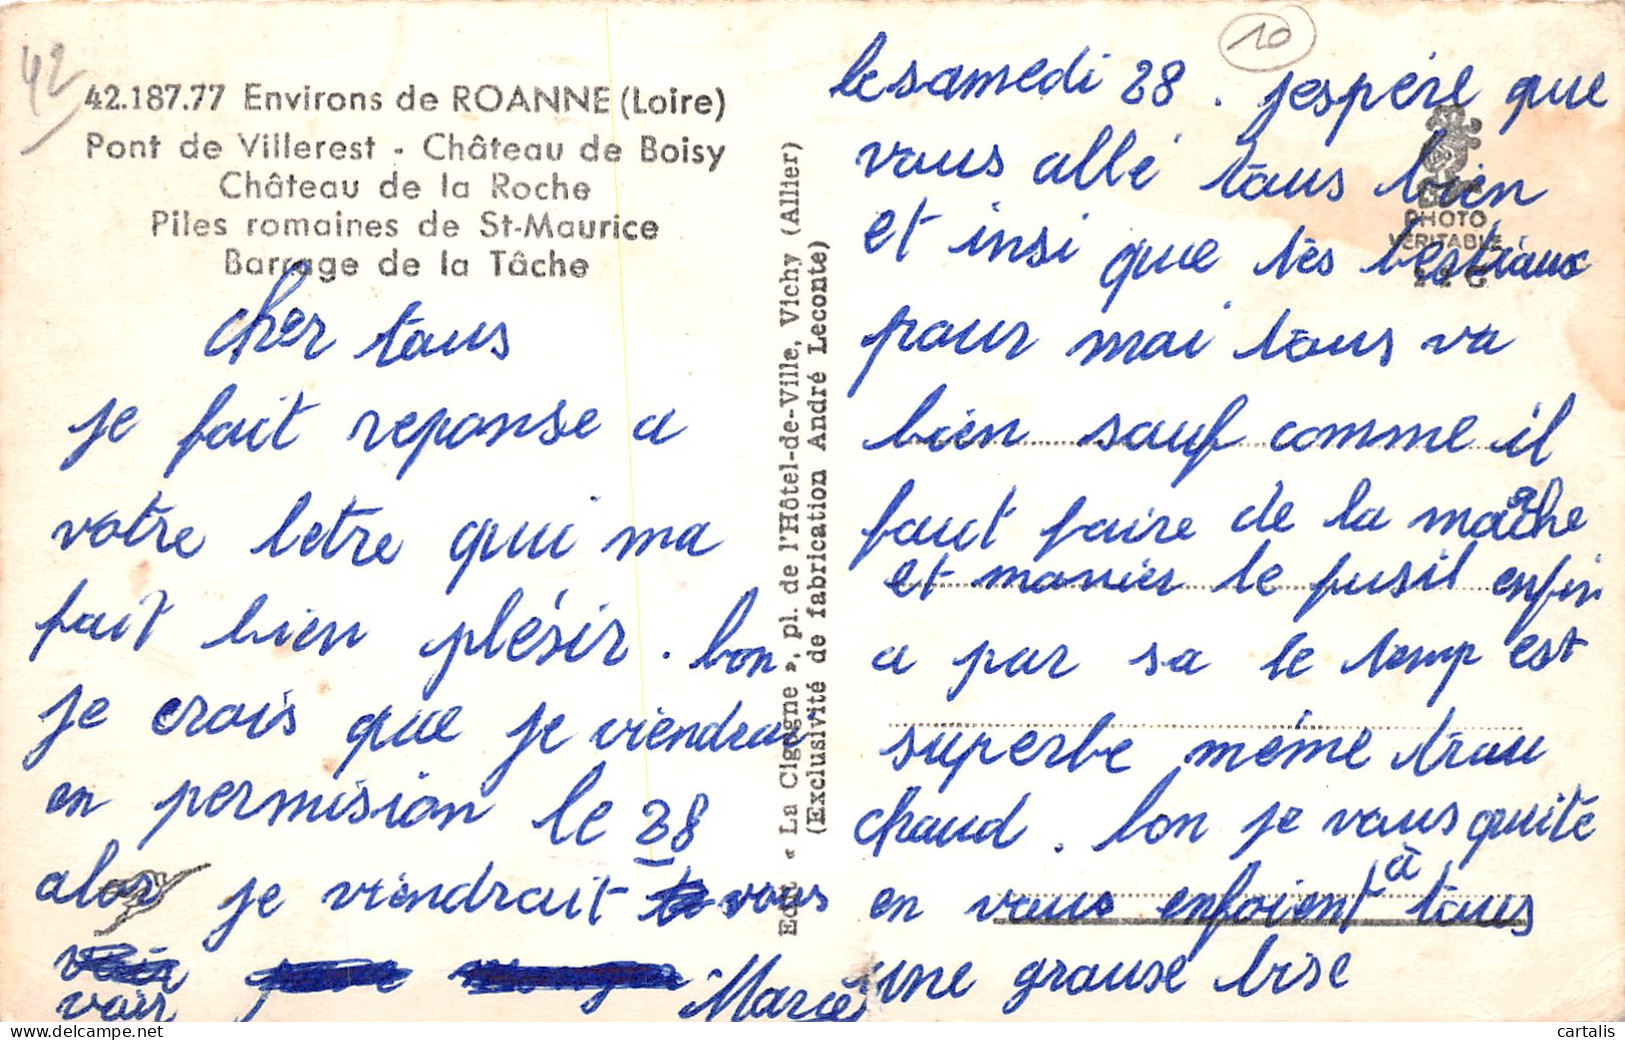 42
42.187.77 Environs de ROANNE (Loire)
Pont de Villerest - Château de Boisy
Château de la Roche
Piles romaines de St-Maurice
Barrage de la Tâche
cher tous
je fait reponse a
votre letre qui ma
fait bien plésir. bon
je crois que je viendrai
en permision le 28
alors je viendrait vous
voir
Marcel
Edit. « La Cigogne », pl. de l'Hôtel-de-Ville, Vichy (Allier)
(Exclusivité de fabrication André Leconte)
10
le samedi 28. jespére que
vous allé tous bien
et insi que les bestiaux
pour moi tous va
bien sauf comme il
faut faire de la mache
et manier le fusil enfin
a par sa le temp est
superbe méme trau
chaud. bon je vous quite
en vous enfoient à tous
une grause bise
PHOTO
VÉRITABLE